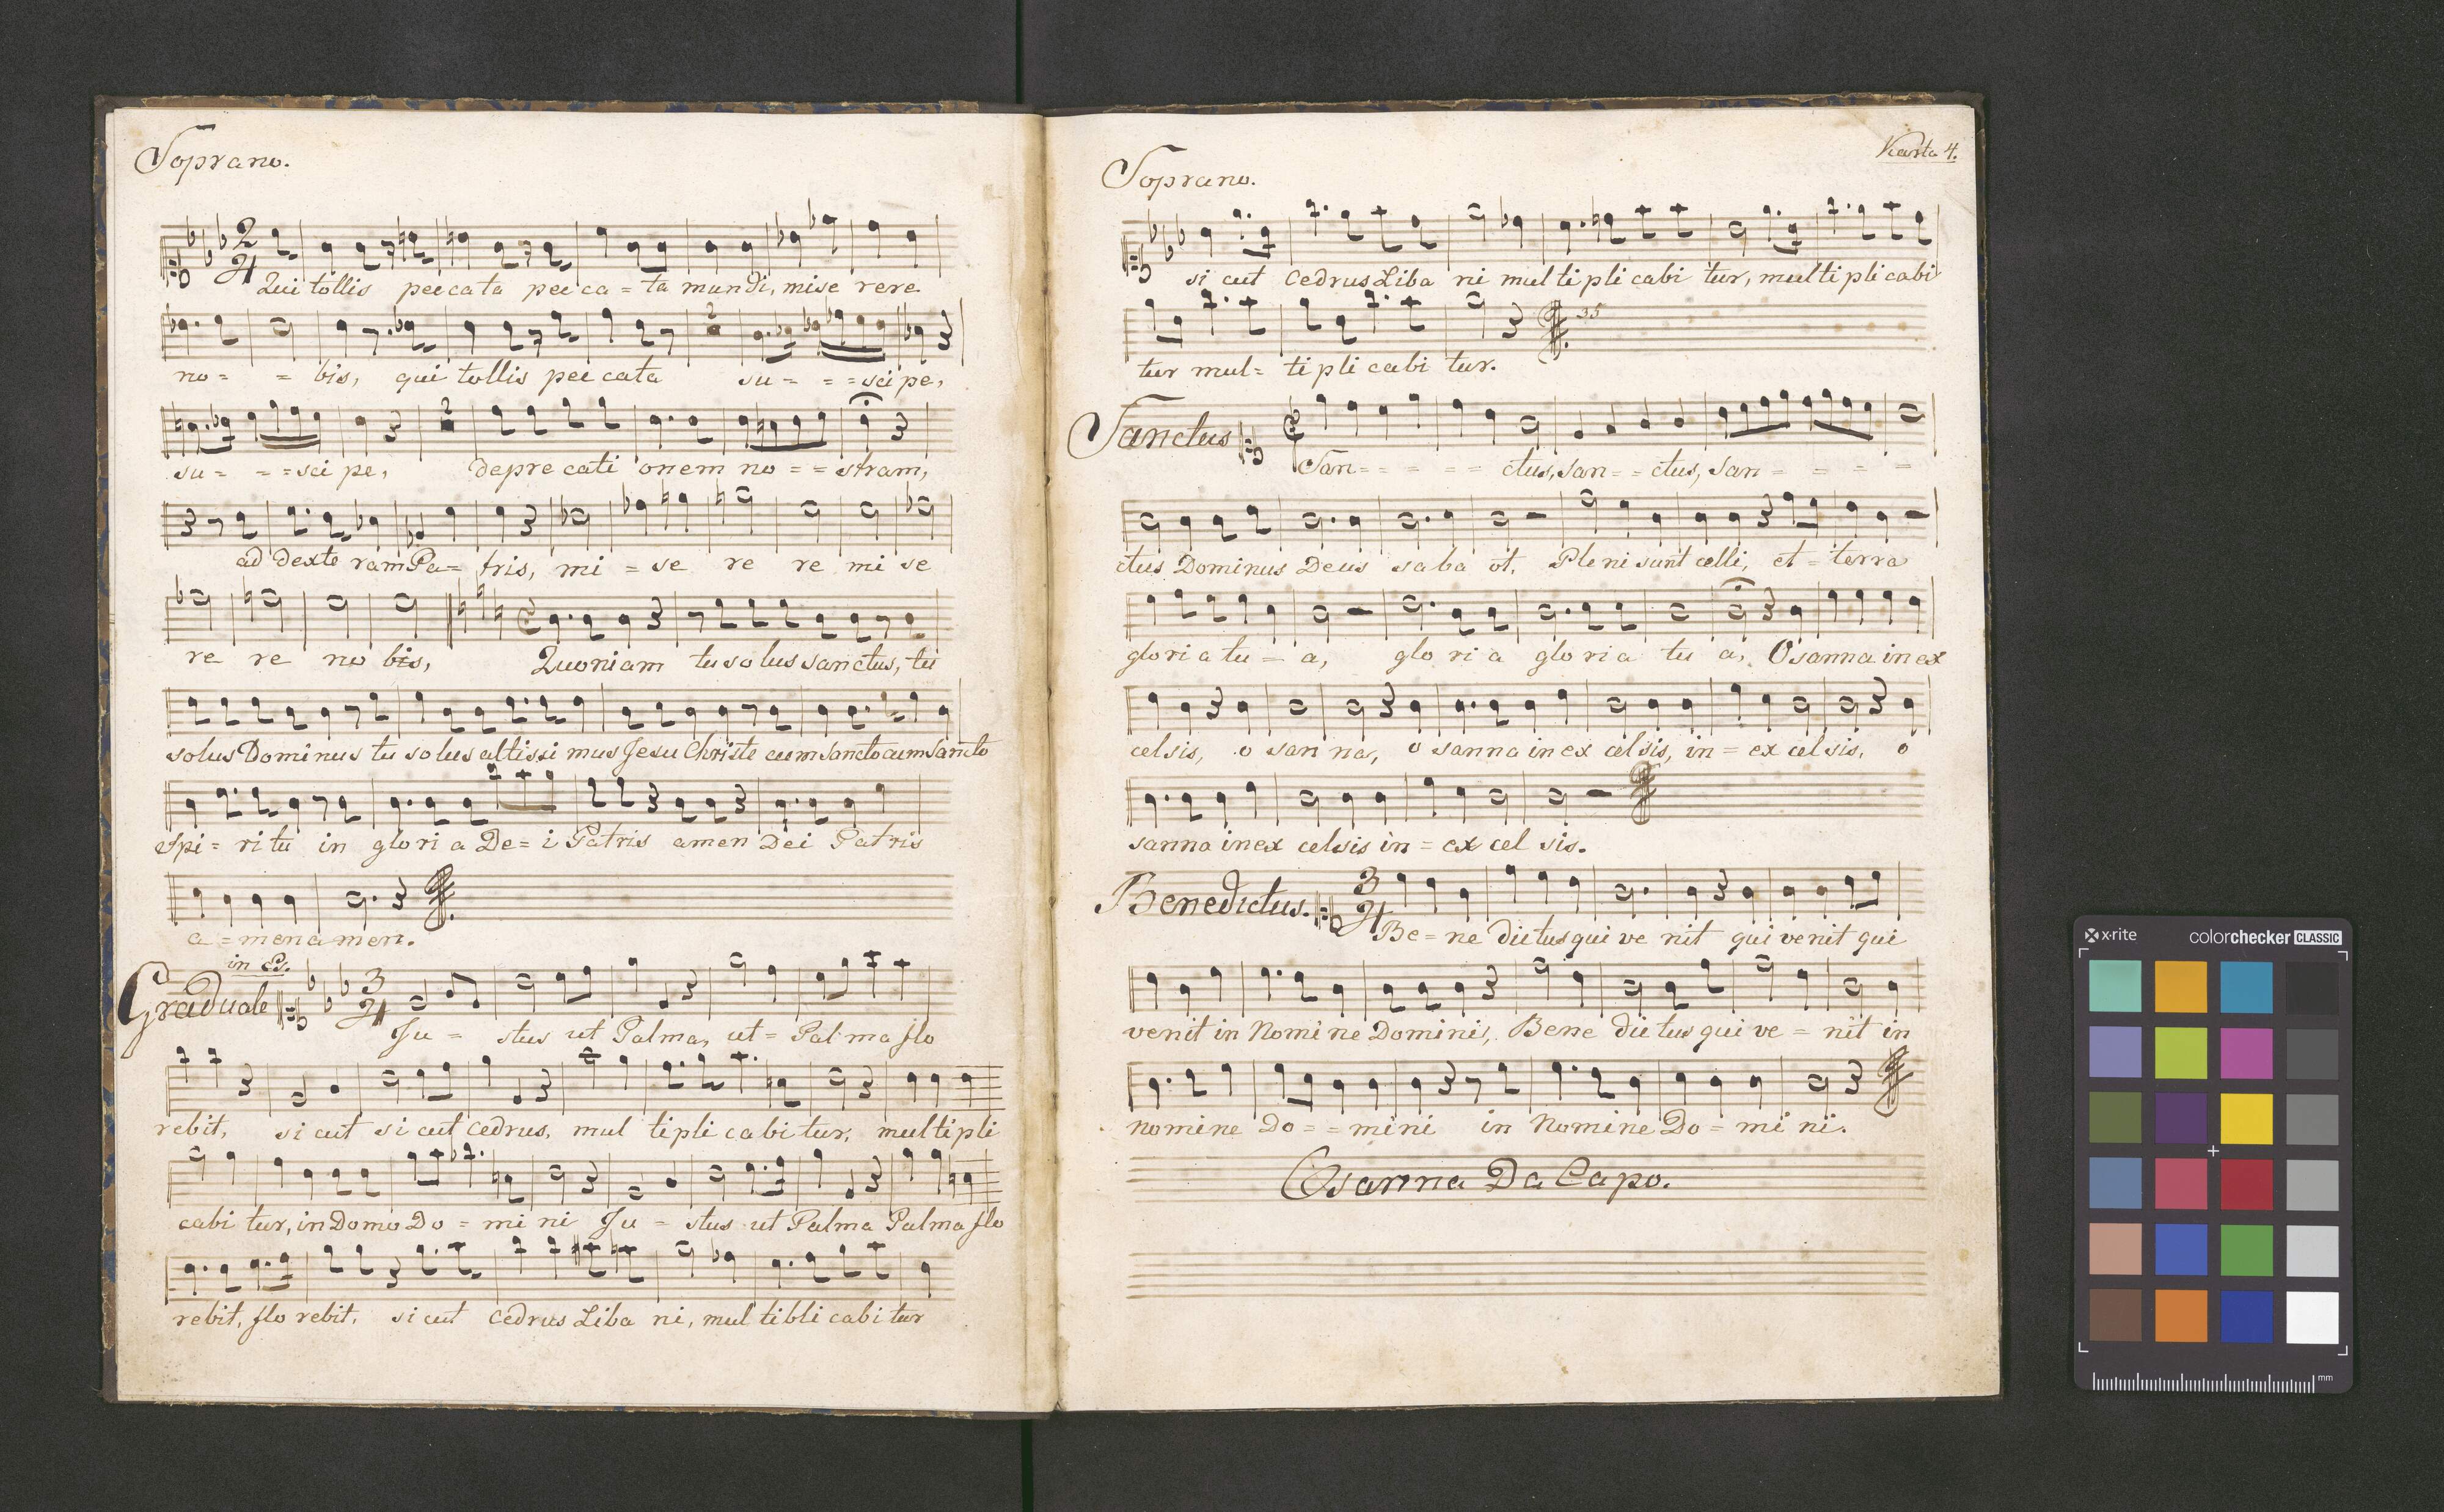 Soprano.
2/4
Qui tollis peccata pecca=ta mundi, mise rere
2
no= = bis, qui tollis peccata su= = =scipe,
2
su= = =sci pe, depre cati onem no = = stram,
ad dexte ram Pa= tris, mi = se re re mi se
re re no bis, Quoniam tu solus sanctus, tu
solus Dominus tu solus altissi mus Jesu Christe cum Sancto cum Sancto
Spi= ri tu in glori a De= i Patris amen Dei Patris
a =men amen.
in Es.
Graduale 3/4
Ju = stus ut Palma, ut= Pal ma flo
rebit, si cut si cut Cedrus, mul tipli cabi tur, multi pli
cabi tur, in Domo Do = mi ni Ju = stus ut Palma Palma flo
rebit, flo rebit, si cut Cedrus Liba ni, mul tibli cabi tur
Karta 4.
Soprano.
si cut Cedrus Liba ni mul ti pli cabi tur, multi pli cabi
35
tur mul= ti pli cabi tur.
Sanctus
San= = = = = ctus, san= = ctus, San = = = =
ctus Dominus Deus saba ot. Pleni sunt celli, et = terra
glori a tu = a, glo ri a glo ri a tu a, Osanna in ex
celsis, o san na, o sanna in ex celsis, in = ex celsis, o
sanna in ex celsis in = ex cel sis.
Benedictus. 3/4
Be= ne dictus qui ve nit qui venit qui
venit in Nomi ne Domini, Bene dic tus qui ve = nit in
nomine Do= = mini in Nomine Do = mi ni.
Osanna Da Capo.
x-rite
colorchecker CLASSIC
mm